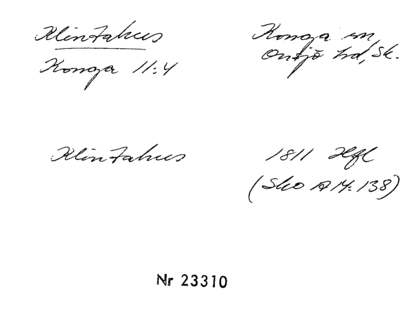 Klintahus
Konga sn
Konga 11:4
Onsjö hd, Sk.
Klintahus
1811 Hfl
(Sko A 14: 138)
Nr 23310